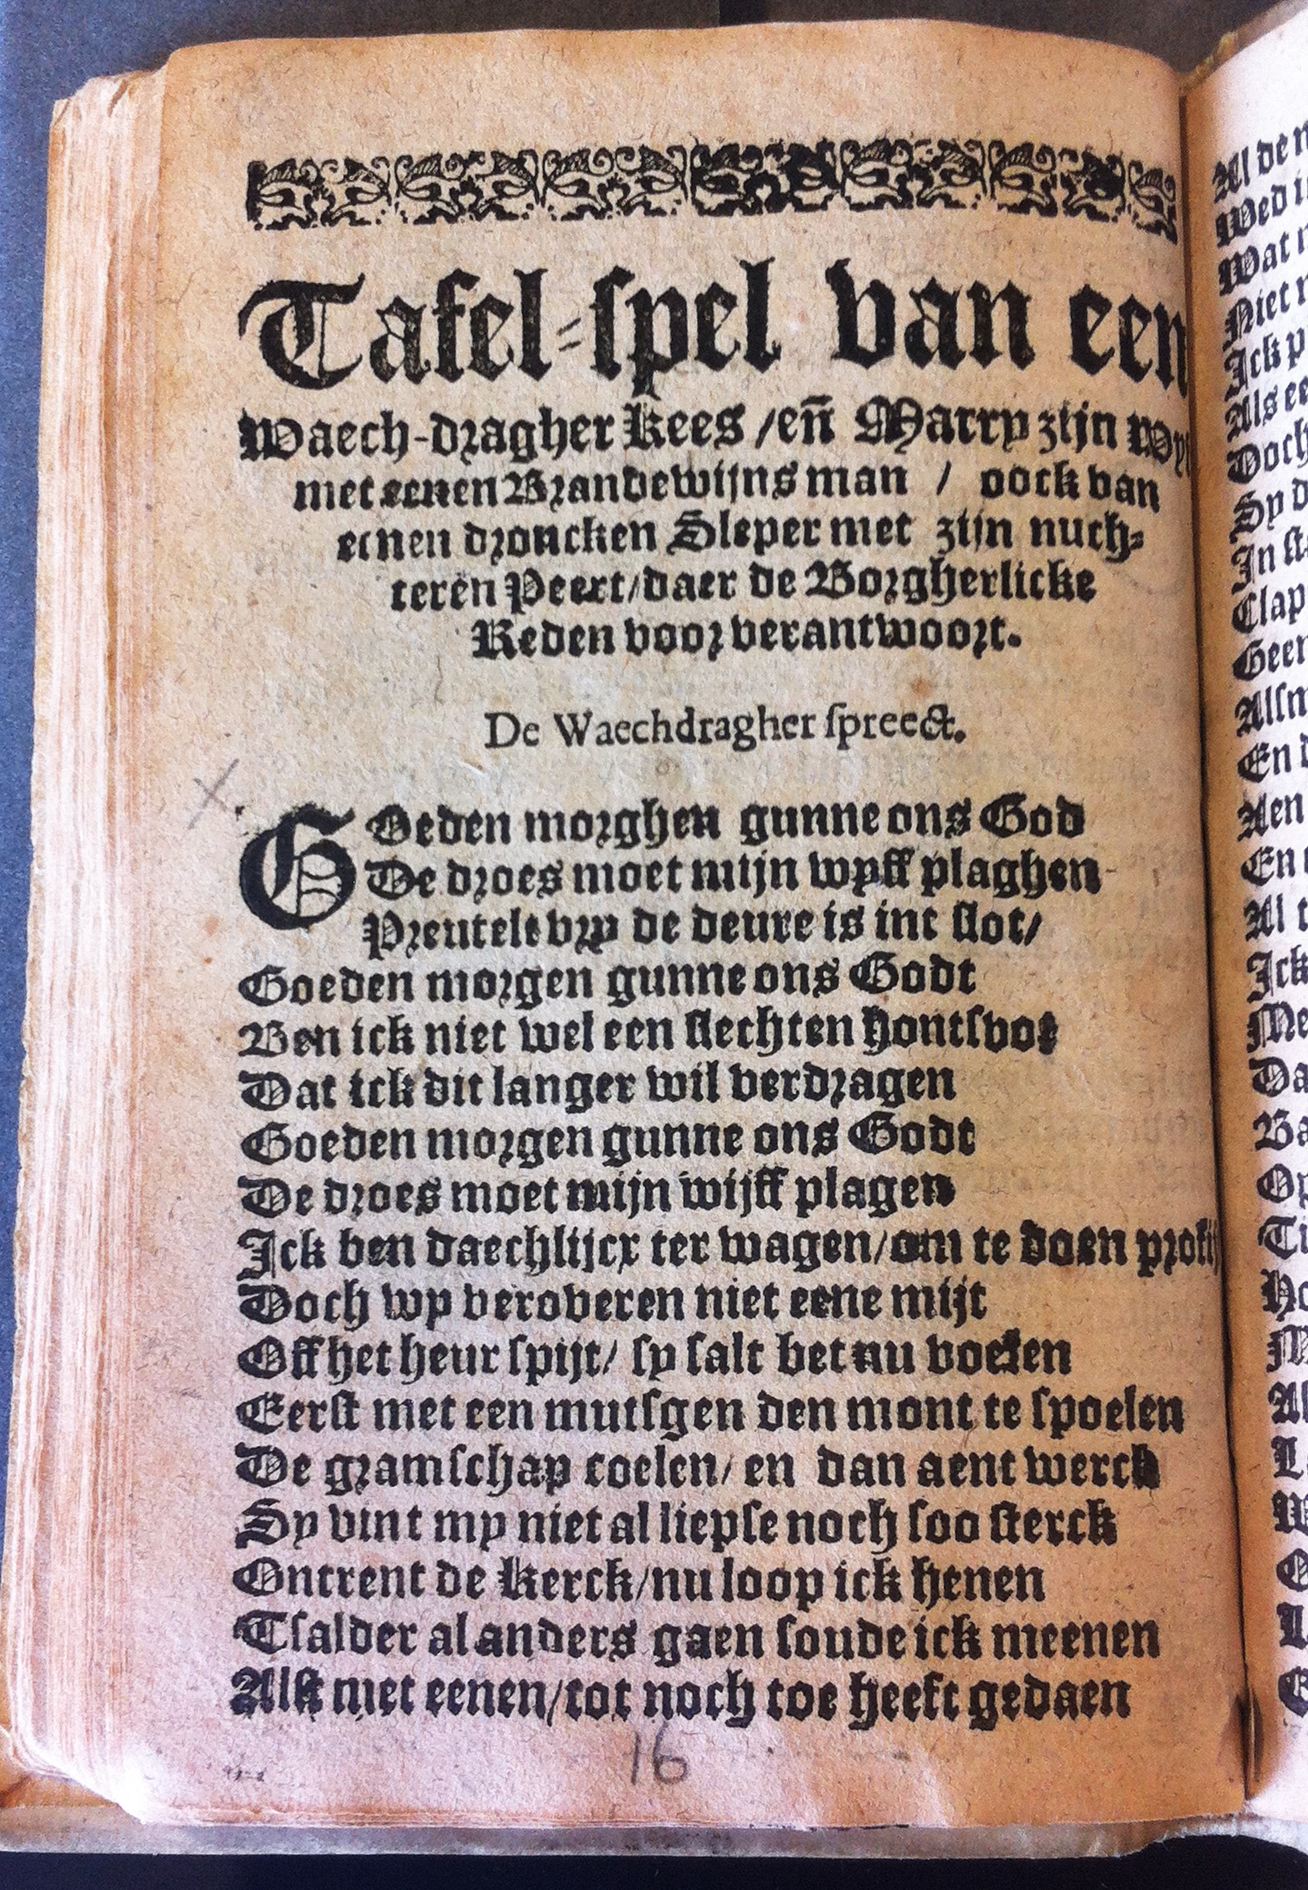 Tafel-spel van een
Waech-dragher Kees / eñ Marry zijn Wyf
met eenen Brandewijns man / oock van
eenen droncken Sleper met zijn nuch-
teren Peert / daer de Borgherlicke
Reden voor verantwoort.
De Waechdragher spreect.
GOeden morghen gunne ons God
De droes moet mijn wyff plaghen
Preutelt vry de deure is int slot /
Goeden morgen gunne ons Godt
Ben ick niet wel een slechten hontsvot
Dat ick dit langer wil verdragen
Goeden morgen gunne ons Godt
De droes moet mijn wijff plagen
Ick ben daechlijcx ter wagen / om te doen profijt
Doch wy veroveren niet eene mijt
Off het heur spijt / sy salt bet nu voelen
Eerst met een mutsgen den mont te spoelen
De gramschap coelen / en dan aent werck
Sy vint my niet al liepse noch soo sterck
Ontrent de Kerck / nu loop ick henen
Tsalder al anders gaen soude ick meenen
Alst met eenen / tot noch toe heeft gedaen
16
Al de
Wat
Niet
Ick
Als
Doch
Sy
In
Clap
Geen
En
Aen
En
Al
Ick
Me
Da
Ba
Op